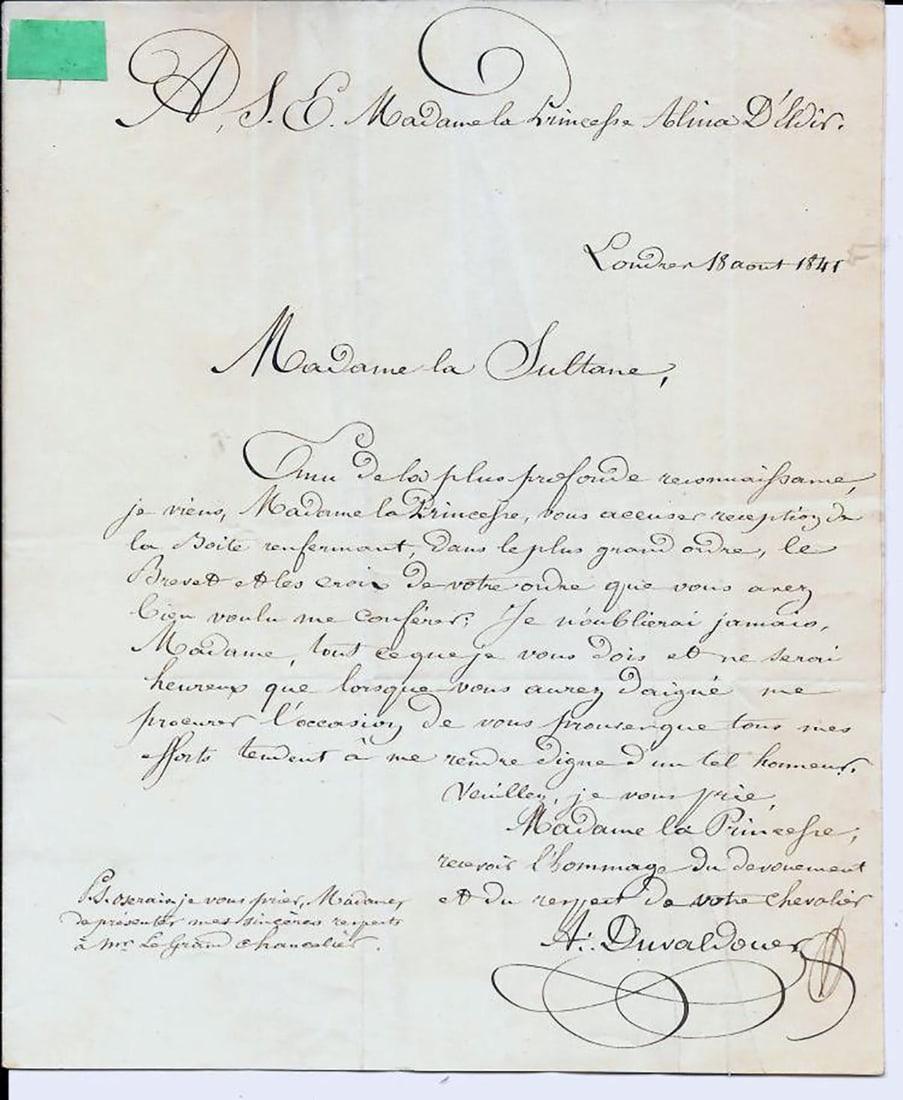 A, S. E. Madame la Princesse Alina D'Eldir.
Londres 18 aout 1841
Madame la Sultane,
Emu de la plus profonde reconnaissance,
je viens, Madame la Princesse, vous accuser reception de
la Boite renfermant, dans le plus grand ordre, le
Brevet et les croix de votre ordre que vous avez
bien voulu me conférer; Je n'oublierai jamais,
Madame, tout ce que je vous dois et ne serai
heureux que lorsque vous aurez daigné me
procurer l'occasion de vous prouver que tous mes
efforts tendent à me rendre digne d'un tel honneur.
Veuillez, je vous prie,
Madame la Princesse,
recevoir l'hommage du devouement
et du respect de votre chevalier
A. Duvaldouer
P.S. oserais je vous prier, Madame,
de présenter mes sincères respects
à Mr. Le Grand Chancelier.